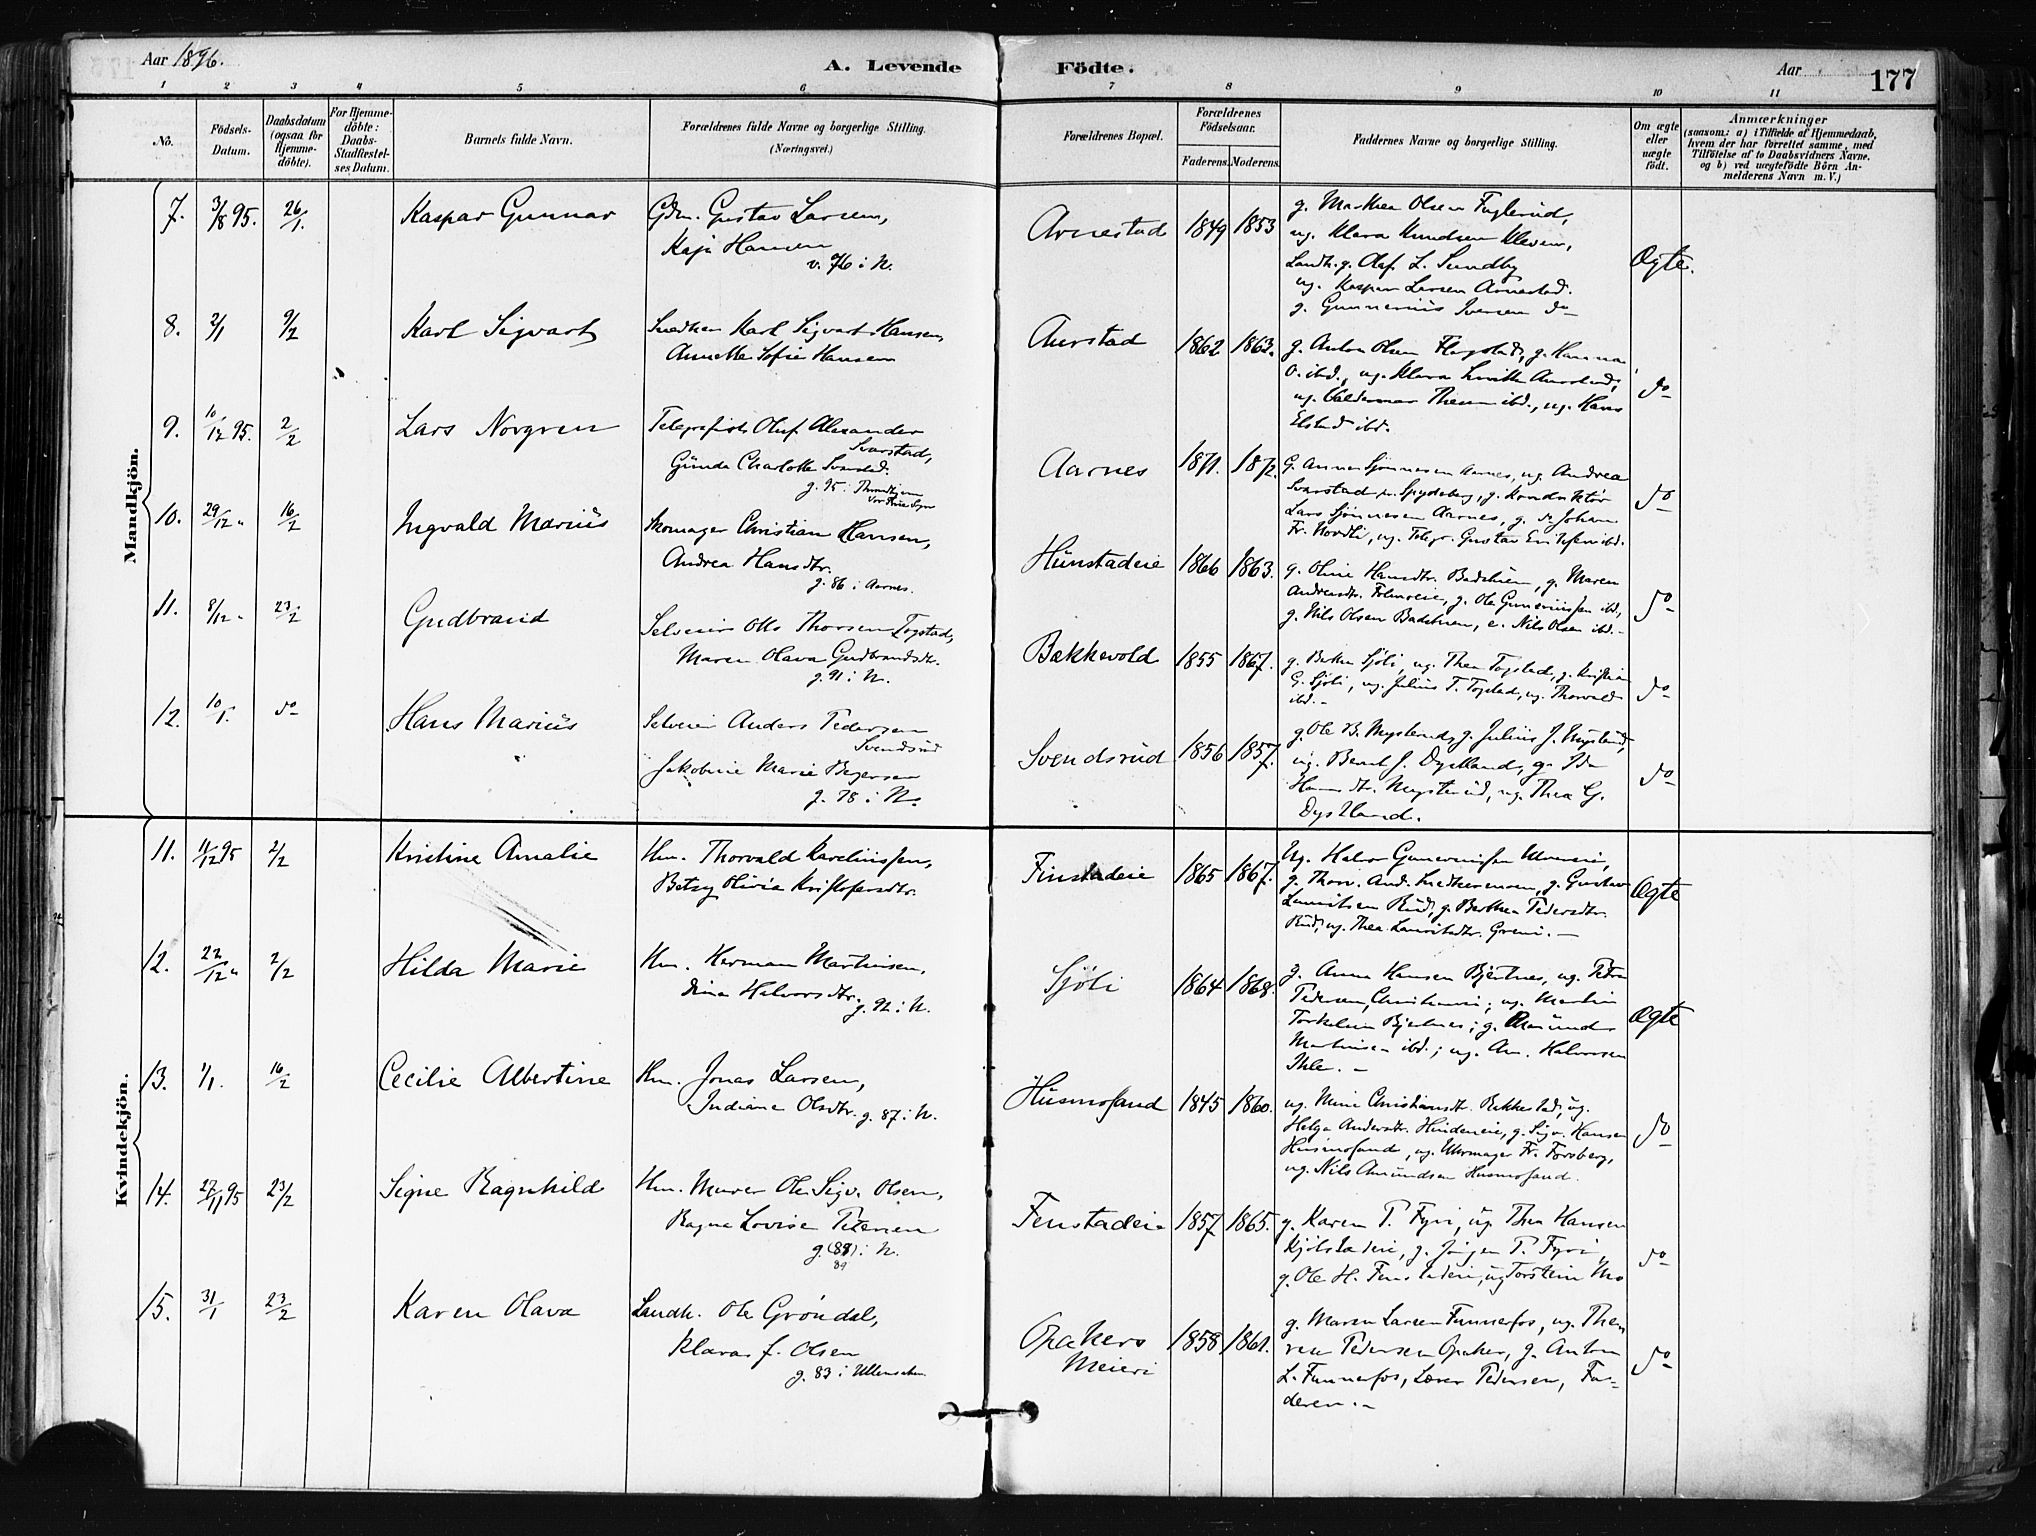 Aar 1896.
A. Levende Födte.
Aar
177
1 2 3 4 5 6 7 8 9 10 11
No.
Födsels-Datum.
Daabsdatum (ogsaa for Hjemme-döbte).
For Hjemme-döbte: Daabs-Stadfæstel-ses Datum.
Barnets fulde Navn.
Forældrenes fulde Navne og borgerlige Stilling. (Næringsvei.)
Forældrenes Bopæl.
Forældrenes Födselsaar.
Faderens. Moderens.
Faddernes Navne og borgerlige Stilling.
Om ægte eller uægte født.
Anmærkninger
(saasom: a) i Tilfælde af Hjemmedaab,
hvem der har forrettet samme, med
Tilföielse af to Daabsvidners Navne.
og b) ved uægtefödte Börn An-
melderens Navn m. V.)
Mandkjön.
7. 3/8 95. 26/1. Kaspar Gunnar
Gdm. Gustav Larsen,
Kaja Hansen
v. 76 i N.
Arnestad 1849 1853
g. Marthea Olsen Fuglerud,
ug. Klara Knudsen Kleven,
Landh. g. Olaf L. Sundby
ug. Kaspar Larsen Arnestad.
g. Gunnerius Iversen do
Ægte.
8. 2/1 9/2 Karl Sigvart
Snedker Karl Sigvart Hansen,
Annette Sofie Hansen
Aarstad 1862 1863.
g. Anton Olsen Flagstad, g. Hanna
O. ibd., ug. Klara Aarstad,
ug. Valdemar Them ibd., ug. Hans
Elstad ibd.
do
9. 10/12 95. 2/2 Lars Norgren
Telegrafist Oluf Alexander
Svarstad,
Gunda Charlotte Svarstad.
g. 95 i Throndhjem
Vor Frue Sogn
Aarnes 1871. 1872.
G. Anna Sjønnesen Aarnes, ug. Andrea
Svarstad Spydeberg, g. Konduktør
Lars Sjønnesen Aarnes, g. do Johan
Fr. Nordli, ug. Telegr. Gustav ibd.
do
10. 29/12 " 16/2 Ingvald Marius
Skomager Christian Hansen,
Andrea Hansdtr.
g. 86 i Aarnes.
Hunstadeie 1866 1863.
g. Oline Hansdtr. g. Maren
Andreasdtr. g. Ole Gunneriussen ibd,
g. Nils Olsen e. Nils Olsen ibd.
do
11. 8/12 " 23/2 Gudbrand
Selveier Otto Thorsen Togstad,
Maren Olava Gudbrandsdtr.
g. 91 i N.
Bækkevold 1855 1867.
g. Sjöli, ug. Thea Togstad, g. Kristian
G. Sjöli, ug. Julius T. Togstad, ug. Thorvald
ibd.
do
12. 10/1. do Hans Marius
Selveier Anders Pedersen
Svendsrud
Jakobine Marie Begersen
g. 78 i N.
Svendsrud 1856 1857.
g. Ole B. Mysterud, g. Julius J. Mysterud,
ug. Bernt J. Dystland, g. Ida
Hansdtr. Mysterud, ug. Thea G.
Dystland.
do
Kvindekjön.
11. 11/12 95 2/2 Kristine Amalie
Hm. Thorvald Kareliussen,
Betzy Olivia Kristofersdtr.
Finstadeie 1865 1867.
Ug. Halvor Gunneriussen
g. Thorv. And. g. Gustav
Lauritsen Rud, g. Berthea Pedersdtr.
Rud, ug. Thea Lauritsdtr. Greni.
Ægte
12. 22/12 " 2/2 Hilda Marie
Hm. Herman Martinsen,
Dina Halvorsdtr.
g. 92 i N.
Sjöli 1864 1868.
g. Anna Hansen Bjertnes, ug. Petra
Pedersen, Christiania; ug. Martin
Torkelsen Bjertnes; g. Amund
Martinsen ibd.; ug. An. Halvorsen
Ihle.
Ægte
13. 1/1. 16/2 Cecilie Albertine
Hm. Jonas Larsen,
Indiane Olsdtr. g. 87 i N.
Husmosand 1845 1860.
ug. Mina Christiansdtr. Bekkestad, ug.
Helga Andersdtr. Hindeneie, g. Sigv. Hansen
Husmosand, ug. Uhrmager Fr. Forsberg,
ug. Nils Amundsen Husmosand.
do
14. 27/11 95 23/2 Signe Ragnhild
Hm. Murer Ole Sigv. Olsen,
Ragna Lovise Petersen
g. (88) i N.
89
Fenstadeie 1857 1865.
g. Karen P. Fyri, ug. Thea Hansen
Kjölstadeie, g. Jörgen P. Fyri,
g. Ole H. Fenstadeie, ug Torstein Mo
do
15. 31/1 23/2 Karen Olava
Landh. Ole Gröndal,
Klara J. Olsen
g. 83 i Ullensaker
Opakers
Meieri
1858 1861.
g. Maren Larsen Funnefos, ug. The-
rese Pedersen Opaker, g. Anton
L. Funnefos, Lærer Pedersen, Fa-
deren.
do